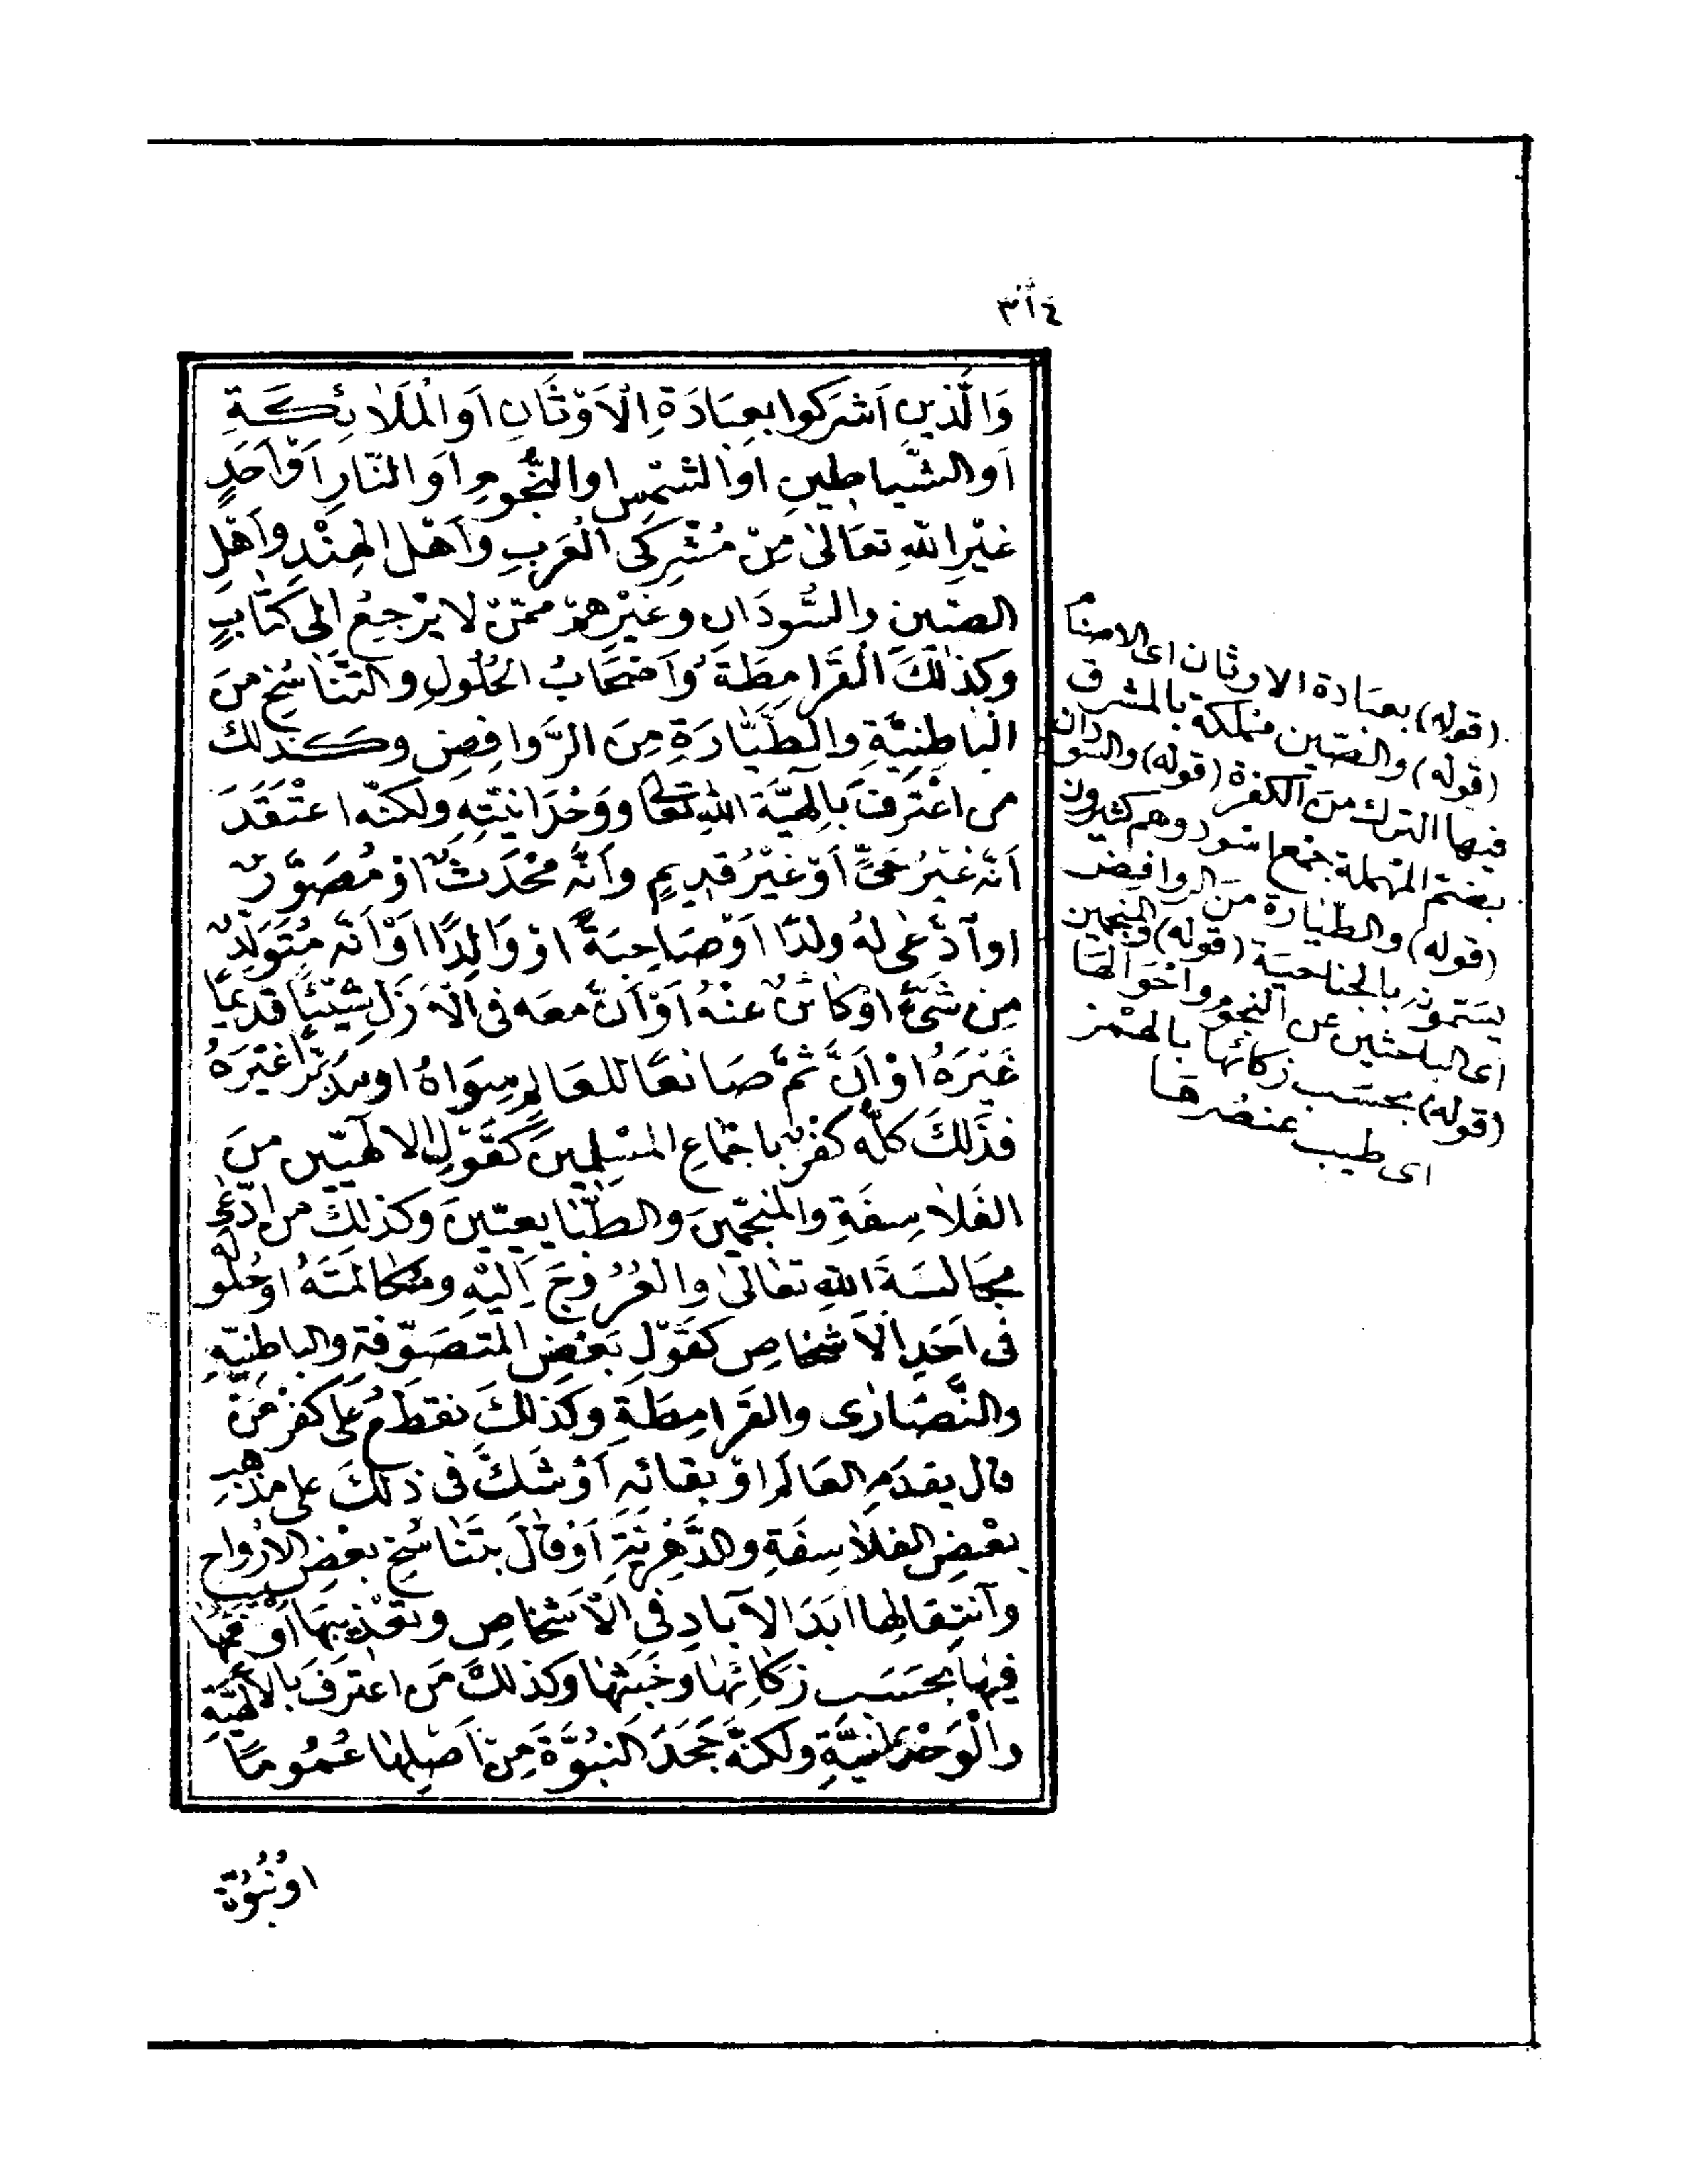 ٣١٤
وَالَّذِينَ اَشْرَكُوا بِعِبَادَةِ الْاَوْثَانِ اَوِ الْمَلَائِكَةِ
اَوِ الشَّيَاطِينِ اَوِ الشَّمْسِ اوِ النُّجُومِ اَوِ النَّارِ اَوْ اَحَدٍ
غَيْرِ اللهِ تعَالىٰ مِنْ مُشْرِكِى الْعَرَبِ وَاَهْلِ الهِنْدِ وَاَهْلِ
الصّينِ والسُّودَانِ وغَيْرِهِمْ ممّنْ لا يَرْجِعُ الٰى كِتَابٍ
وَكَذٰلِكَ الْقَرَامِطَةُ وَاَصْحَابُ الحُلُولِ والتَّنَاسُخِ مِنَ
الْبَاطِنِيَّةِ والطَّيَّارَةِ مِنَ الرَّوافِضِ وكَذلك
من اعْتَرَفَ بِالهِيَّةِ اللهِ تعَالى ووَحْدَانيّتِهِ ولكنّه اعْتَقَدَ
اَنّه غَيْرُ حَىٍّ اَوْ غَيْرُ قَدِيمٍ وَاَنَّه مُحْدَثٌ اوْ مُصَوَّرٌ
اوِ ادَّعٰى لهُ ولدًا اَوْ صَاحِبَةً اوْ وَالِدًا اَوْ اَنّه مُتَوَلِّدٌ
مِن شَىْءٍ اوْ كَائنٌ عَنْهُ اَوْ اَنّ معَه فى الْاَزَلِ شَيْئًا قَديمًا
غَيْرَهُ اوْ اَنَّ ثَمَّ صَانِعًا للعَالَمِ سِوَاهُ اوْ مدَبِّرًا غَيْرَهُ
فذٰلكَ كلُّه كفْرٌ بِاجْمَاعِ المسْلِمِينَ كَقَوْلِ الالٰهيّين منَ
الفَلَاسِفَةِ والمنَجِّمِينَ والطَّبَايعيّينَ وكذلكَ من ادّعٰى
مجَالسَةَ اللهِ تعَالىٰ والعُرُوجَ اِلَيْهِ ومكَالمَتَهُ اوْ حُلُولَه
فى اَحَدِ الْاَشْخَاصِ كقَوْلِ بَعْضِ المتصَوِّفةِ والباطِنِيّةِ
والنَّصَارٰى والقَرَامِطَةِ وكَذٰلكَ نقطَعُ عَلَى كفْرِ مَنْ
قال بقِدَمِ العَالَمِ اوْ بقَائهِ اَوْ شَكَّ فى ذٰلكَ عَلى مذْهبِ
بعْضِ الفلَاسِفَةِ والدَّهْرِيَّةِ اَوْ قالَ بتَنَاسُخِ بعْضِ الارْواحِ
وَانتِقَالِها ابَدَ الآبَادِ فى الْاَشْخَاصِ وتعْذِيبِهَا اَوْ تنعِيمِها
فِيهَا بِحَسَبِ زَكَائِهَا وَخُبْثِهَا وكَذلكَ مَن اعْتَرَفَ بالالهيّةِ
والْوَحْدَانِيَّةِ ولكنَّهُ جَحَدَ النّبُوَّةَ مِنْ اَصْلِهَا عُمُومًا
اوْ نُبُوَّةَ
(قوله) بعبَادة الاوثان اى الاصنام
(قوله) والصّين مملكة بالمشرق
فيها الترك من الكفرة (قوله) والسودان
بضم المهملة جمع اسود وهم كثيرون
(قوله) والطّيارة من الروافض
يسمّون بالجناحية (قوله) والمنجمين
اى الباحثين عن النجوم واحوالها
(قوله) بحسب زكائها بالهمز
اى طيب عنصرها